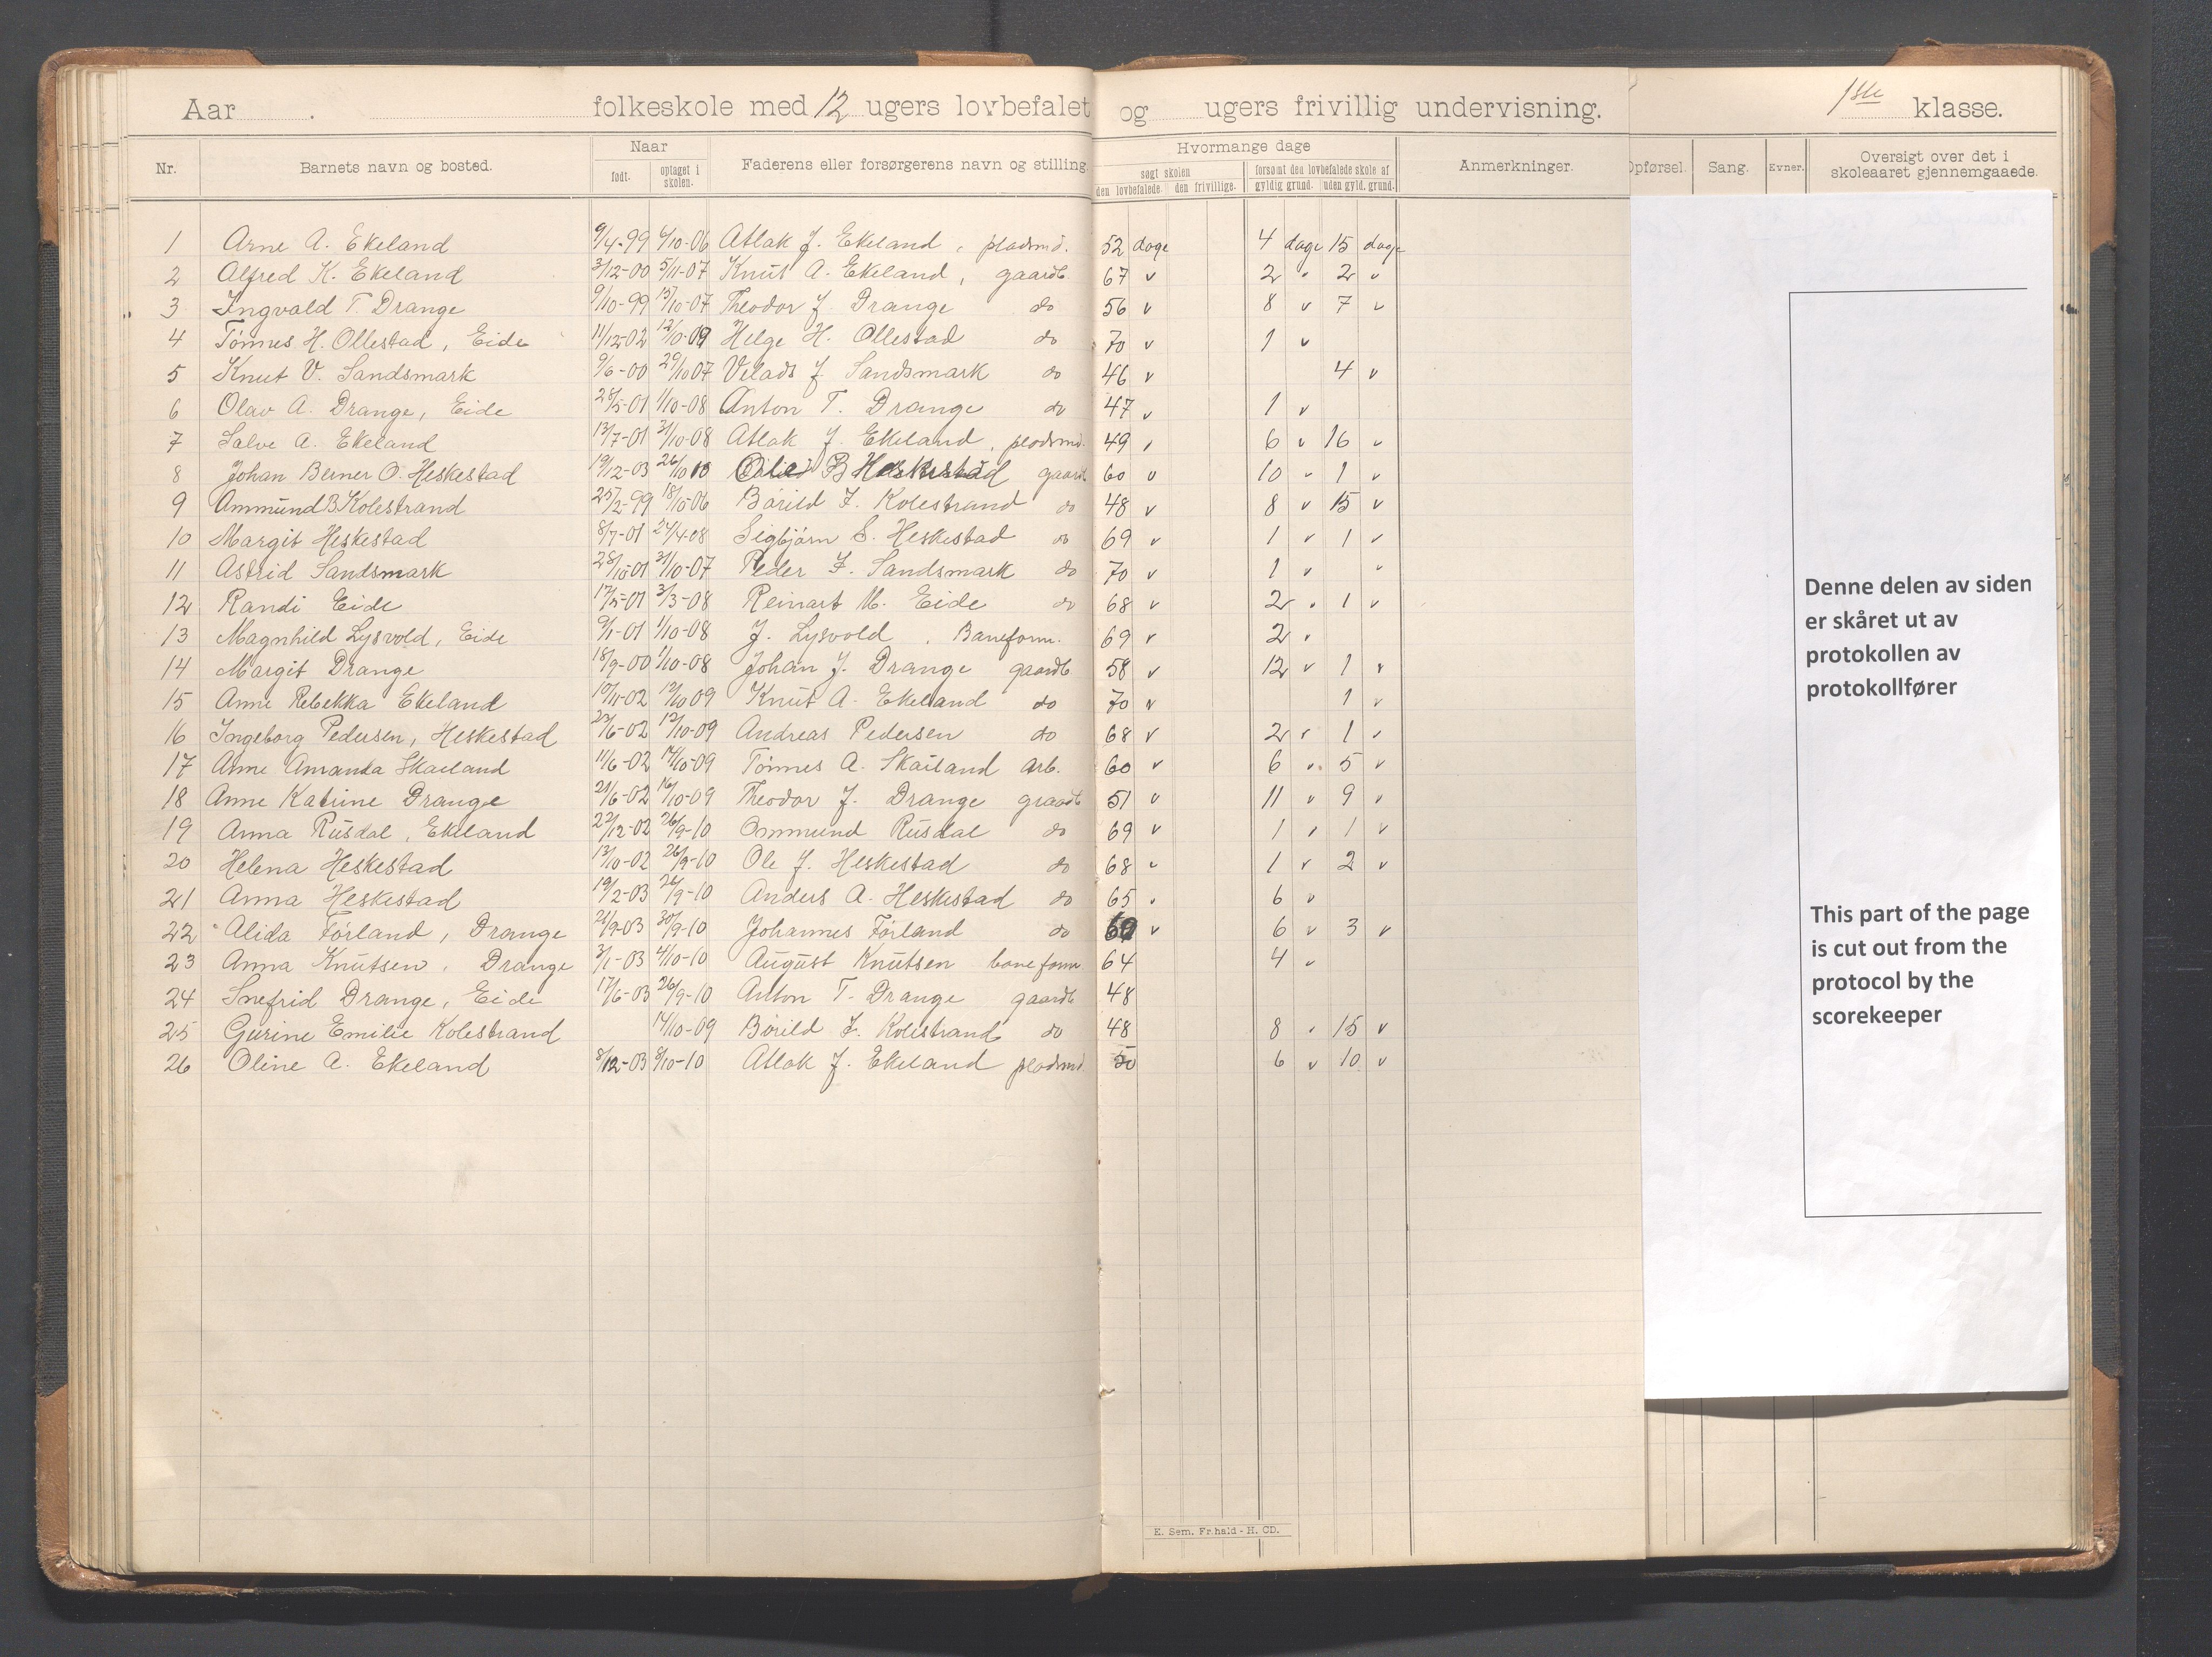 Aar . folkeskole med 12 ugers lovbefalet og ugers frivillig undervisning. 1ste klasse.
Nr. Barnets navn og bosted. Naar født. optaget i skolen. Faderens eller forsørgerens navn og stilling. Hvormange dage søgt skolen den lovbefalede. den frivillige. forsømt den lovbefalede skole af gyldig grund. uden gyld. grund. Anmerkninger. Opførsel. Sang. Evner. Oversigt over det i skoleaaret gjennemgaaede.
1 Arne A. Ekeland 9/4-99 4/10-06 Atlak J. Ekeland, pladsmd. 52 dage 4 dage 15 dage
2 Alfred K. Ekeland 3/12-00 5/11-07 Knut A. Ekeland, gaardb 67 v 2 " 2 v
3 Ingvald T. Drange 9/10-99 15/10-07 Theodor J. Drange do 56 v 8 v 7 v
4 Tønnes H. Ollestad, Eide 11/12-02 12/10-09 Helge H. Ollestad do 70 v 1 v
5 Knut V. Sandsmark 9/6-00 29/10 07 Velads J Sandsmark do 46 v 4 v
6 Olav A. Drange, Eide 28/5-01 1/10-08 Anton T. Drange do 47 v 1 v
7 Salve A. Ekeland 13/7-01 31/10-08 Atlak J. Ekeland, pladsmd. 49 v 6 v 16 v
8 Johan Berner O. Heskestad 19/12-03 26/10 10 B Heskestad gaardb 60 v 10 v 1 v
9 Ommund B Kolestrand 25/2-99 18/10-06 Bårild F. Kolestrand do 48 v 8 v 15 v
10 Margit Heskestad 8/7-01 24/4-08 Sigbjørn S. Heskestad do 69 v 1 v 1 v
11 Astrid Sandsmark 28/10-01 31/10-07 Peder F. Sandsmark do 70 v 1 v "
12 Randi Eide 17/5-01 3/3-08 Reinart M. Eide do 68 v 2 " 1 v
13 Magnhild Lysvold, Eide 9/1-01 1/10-08 J. Lysvold, Baneform. 69 v 2 v
14 Margit Drange 18/9-00 1/10-08 Johan J. Drange gaardb 58 v 12 v 1 v
15 Anne Rebekka Ekeland 10/11-02 12/10 09 Knut A. Ekeland do 70 v 1 v
16 Ingeborg Pedersen, Heskestad 23/6-02 12/10-09 Andreas Pedersen do 68 v 2 v 1 v
17 Anne Amanda Skaeland 11/6-02 14/10-09 Tønnes A. Skaeland arb. 60 v 6 v 5 v
18 Anne Katrine Drange 21/6-02 16/10-09 Theodor J. Drange graadb 51 v 11 v 9 v
19 Anna Rusdal, Ekeland 22/12-02 26/9-10 Ommund Rusdal do 69 v 1 v 1 v
20 Helena Heskestad 13/10-02 26/9-10 Ole J. Heskestad do 68 v 1 v 2 v
21 Anna Heskestad 19/2-03 26/9-10 Anders A. Heskestad do 65 v 6 v
22 Alida Førland, Drange 21/9-03 30/9-10 Johannes Førland do v 6 v 3 v
23 Anna Knutsen, Drange 3/1-03 4/10-10 August Knutsen baneform. 64 4 v
24 Snefrid Drange, Eide 17/6-03 26/9-10 Anton T. Drange gaardb 48
25 Gurine Emilie Kolestrand 14/10-09 Børild F. Kolestrand do 48 8 " 15 v
26 Oline A. Ekeland 8/12-03 8/10-10 Atlak J. Ekeland pladsmd 50 6 v 10 v
Denne delen av siden
er skåret ut av
protokollen av
protokollfører
This part of the page
is cut out from the
protocol by the
scorekeeper
E. Sem. Fr.hald - H. CD.